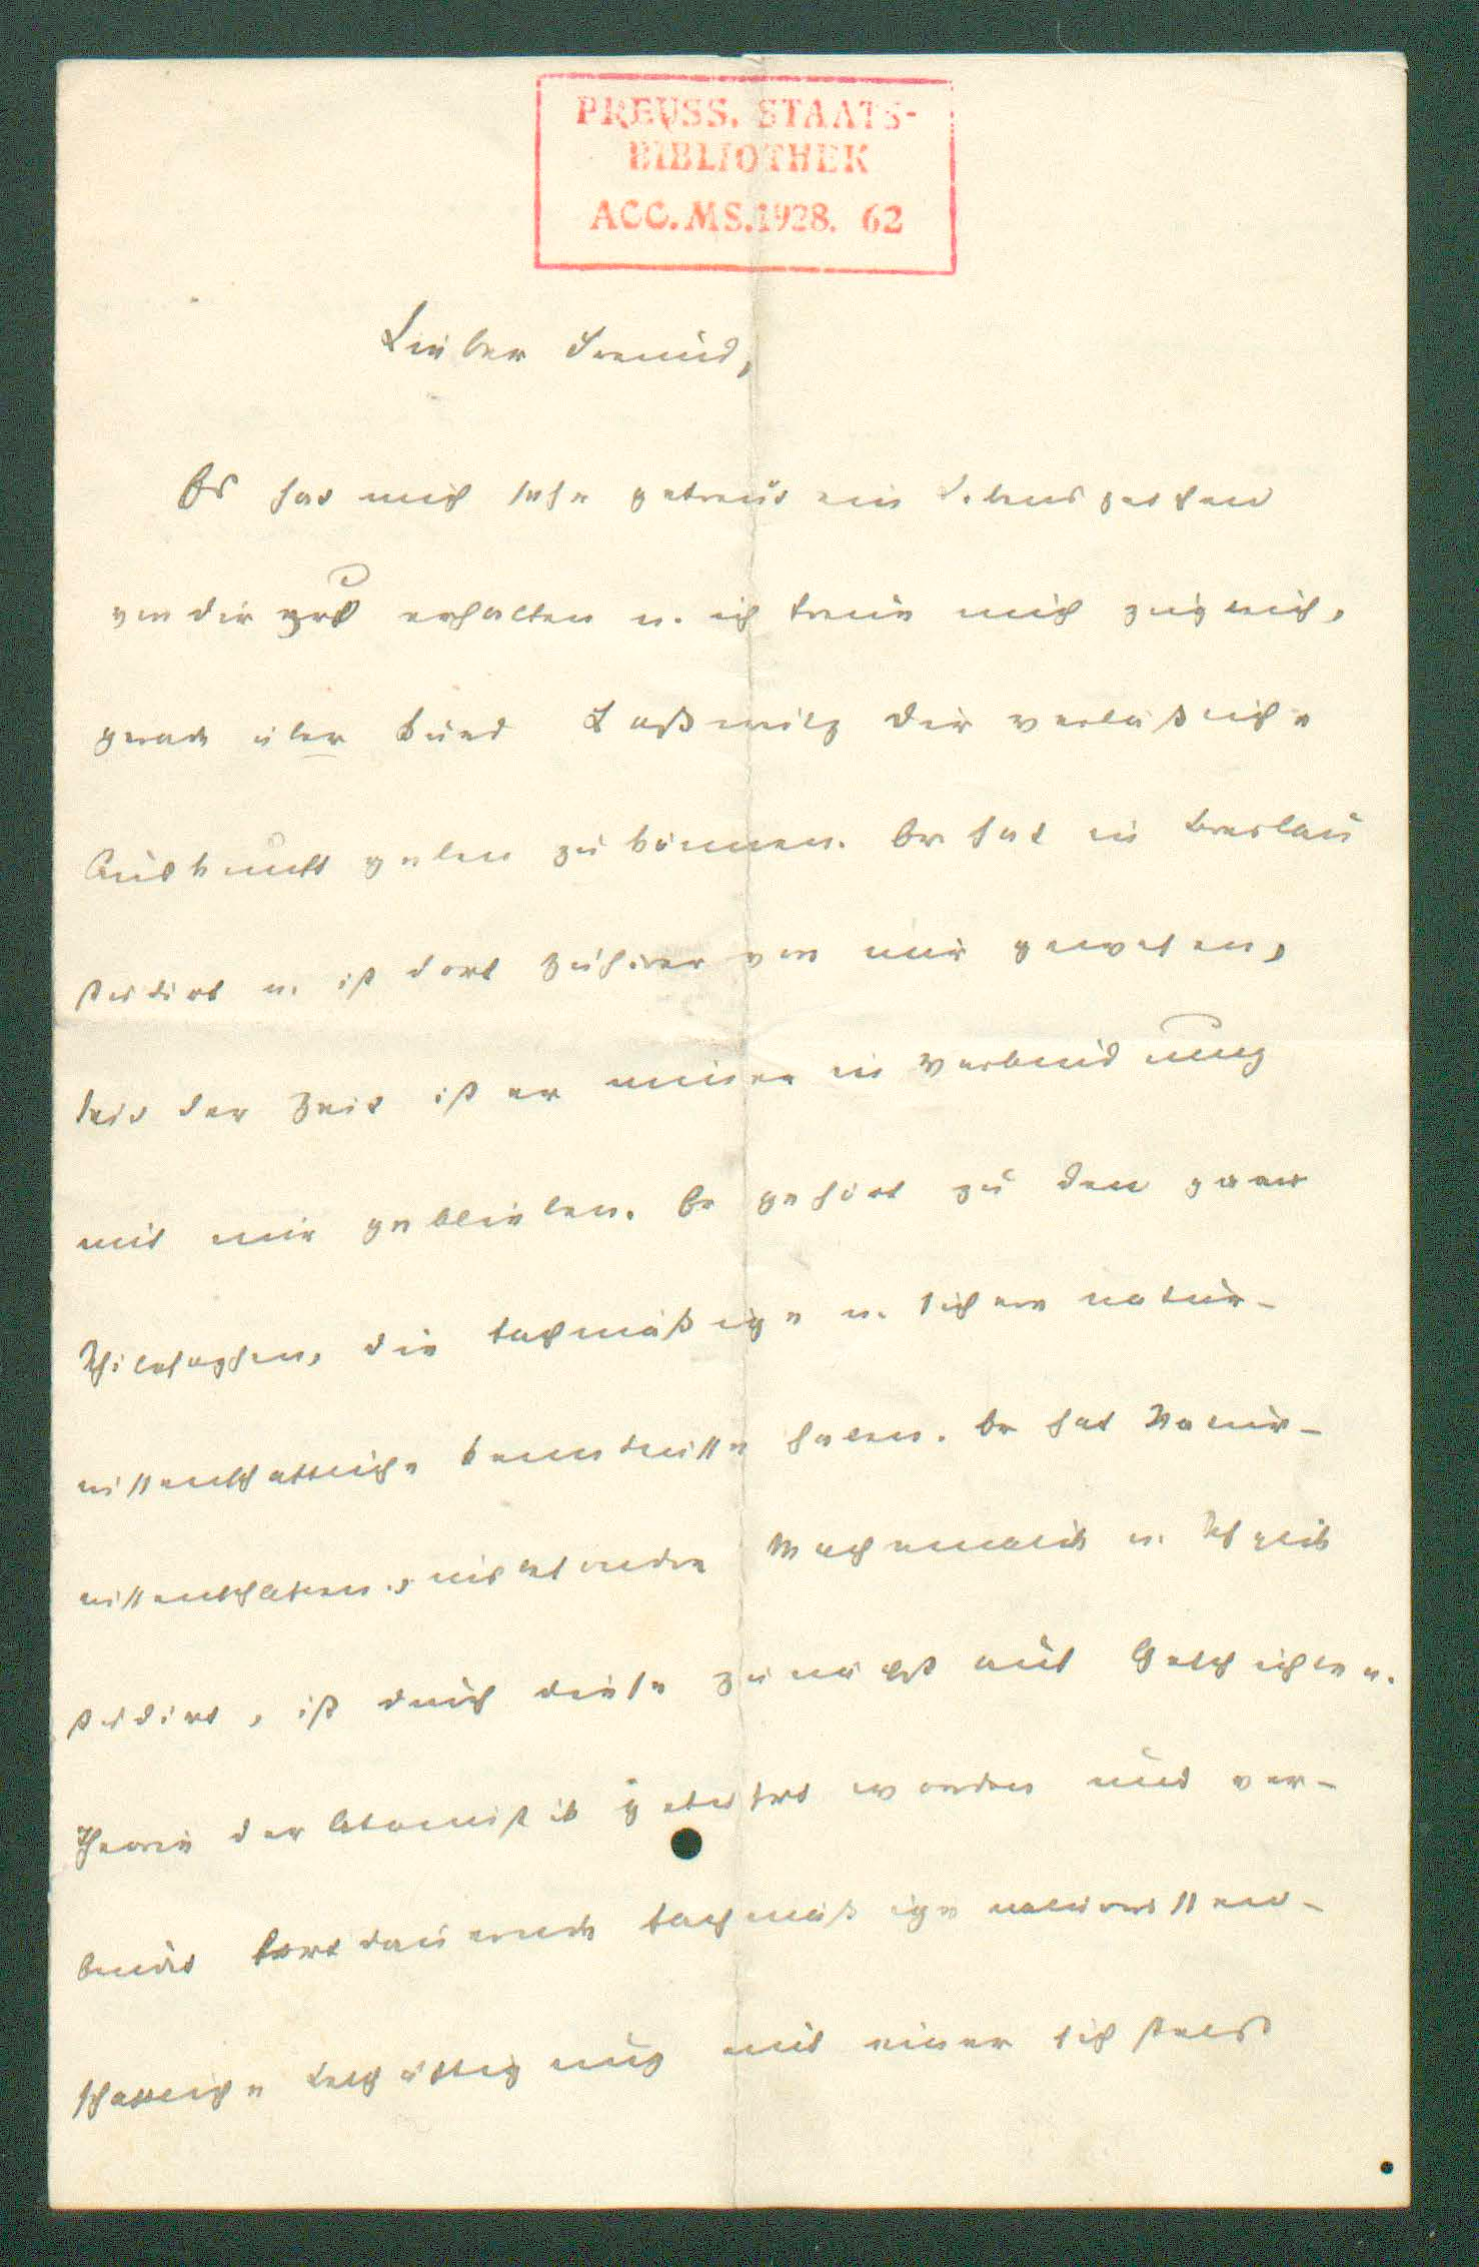 PREUSS. STAATS-
BIBLIOTHEK
ACC. MS. 1928. 62
Lieber Freund,
Es hat mich sehr gefreut ein Lebenszeichen
von dir zu erhalten u. ich freue mich zugleich,
gerade über Kurd Laßwitz dir verläßliche
Auskunft geben zu können. Er hat in Breslau
studirt u. ist dort Zuhörer von mir gewesen,
seit der Zeit ist er immer in Verbindung
mit mir geblieben. Er gehört zu den
Philosophen, die fachmäßige u. sichere natur-
wissenschaftliche Kenntnisse haben. Er hat Natur-
wissenschaften, insbesondre Mathematik u. Physik
studirt, ist durch diese zunächst auf Geschichte u.
Theorie der Atomistik geführt worden und ver-
bindet fortdauernde fachmäßige naturwissen-
schaftliche Beschäftigung mit einer sich stets